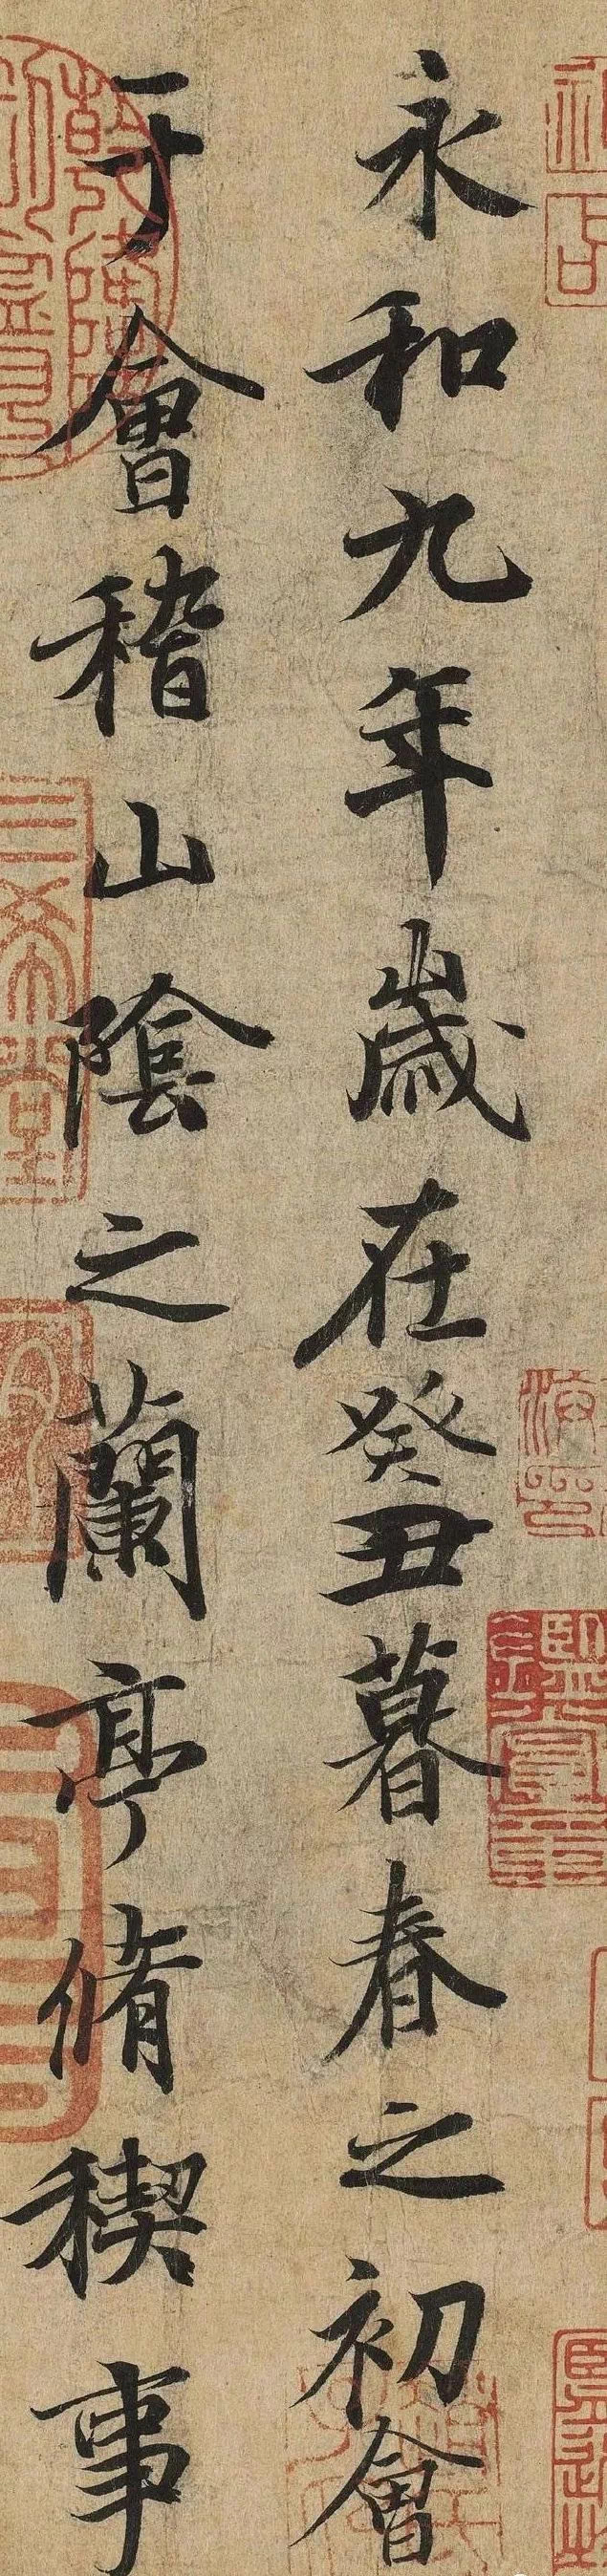 永和九年歲在癸丑暮春之初會
于會稽山陰之蘭亭脩稧事